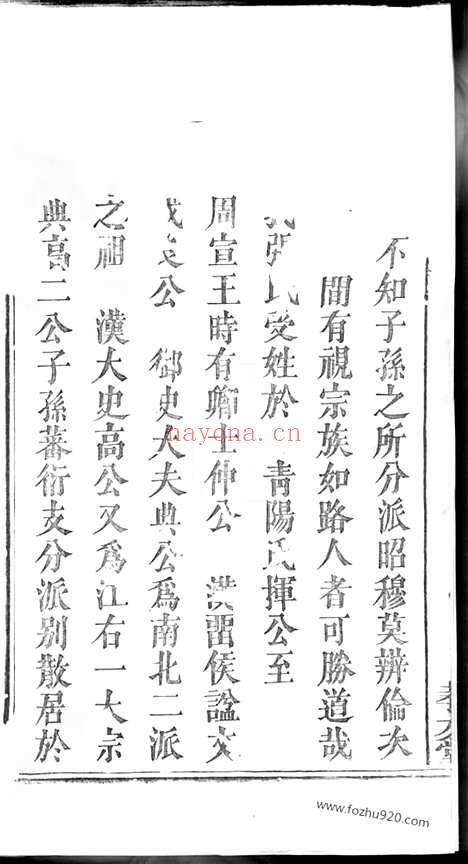 不知子孫之所分派昭穆莫辨倫次
間有視宗族如路人者可勝道哉
張氏受姓於　青陽氏揮公至
周宣王時有卿士仲公　漢留侯諡文
成良公　御史大夫典公爲南北二派
之祖　漢大史高公又爲江右一大宗
典高二公子孫蕃衍支分派别散居於
nayona.cn
www.fozhu920.com